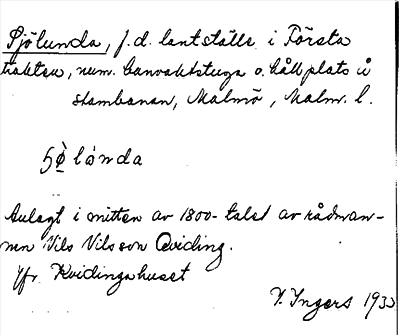 Sjölunda, f.d. lantställe i Första
trakten, num. banvaktstuga o. hållplats å
stambanan, Malmö, Malm. l.
Anlagt i mitten av 1800-talet av rådman-
nen Nils Nilsson Qviding.
Jfr Kvidingahuset
I. Ingers 193